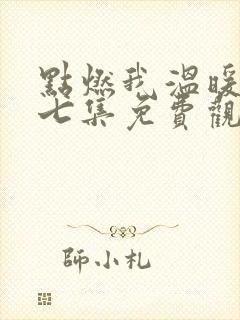 點燃我 溫暖
七集免費觀
師小札